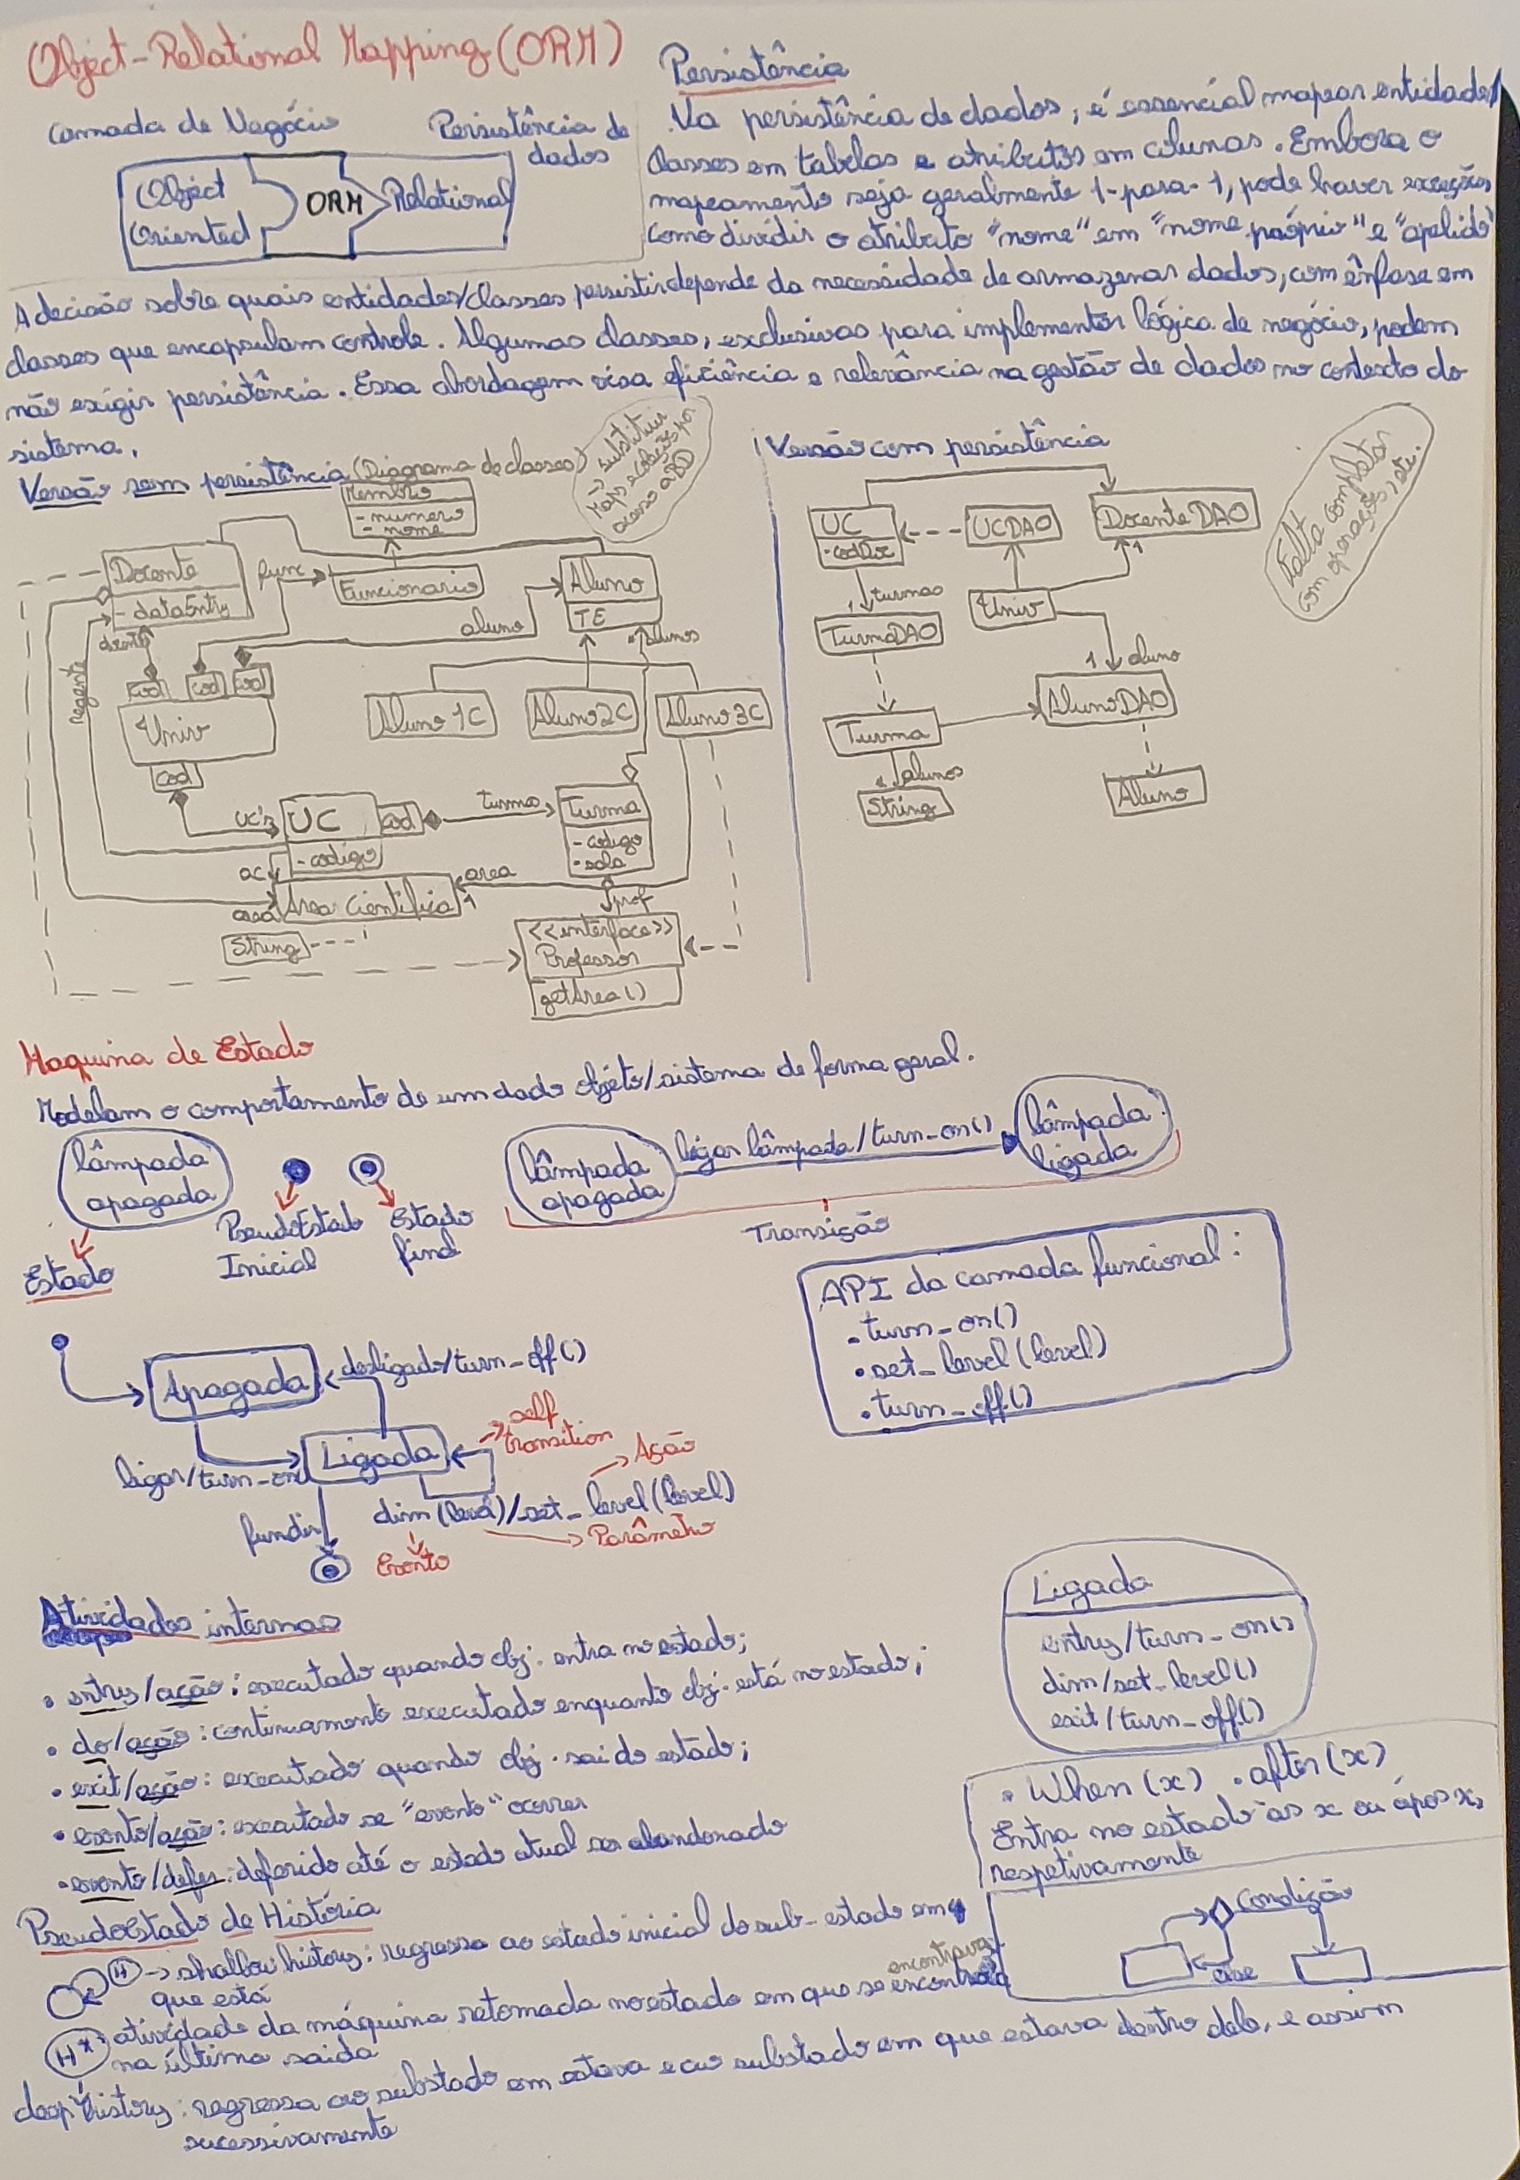 Object-Relational Mapping (ORM)
Camada de Negócio
Persistência de
dados
Object
Oriented
ORM
Relational
Persistência
Na persistência de dados, é essencial mapear entidades/
classes em tabelas e atributos em colunas. Embora o
mapeamento seja geralmente 1-para-1, pode haver exceções
como dividir o atributo "nome" em "nome próprio" e "apelido"
A decisão sobre quais entidades/classes persistir depende da necessidade de armazenar dados, com ênfase em
classes que encapsulam controle. Algumas classes, exclusivas para implementar lógica de negócio, podem
não exigir persistência. Essa abordagem visa eficiência e relevância na gestão de dados no contexto do
sistema.
Versão sem persistência (Diagrama de classes)
substituir
Maps e coleções por
acesso a BD
Membro
- numero
- nome
Docente
- dataEntry
func
Funcionario
Aluno
TE
aluno
alunos
docente
regente
cod
cod
cod
Univ
cod
Aluno 1C
Aluno 2C
Aluno 3C
UC's
UC
- codigo
cod
turmas
Turma
- codigo
- sala
ac
area
1
area
Area Cientifica
String
prof
<<interface>>
Professor
getArea()
Versão com persistência
Falta completar
com operações, etc.
UC
- codDoc
UCDAO
DocenteDAO
1
turmas
1
TurmaDAO
Univ
1
aluno
AlunoDAO
Turma
alunos
String
Aluno
Maquina de Estado
Modelam o comportamento de um dado objeto/sistema de forma geral.
lâmpada
apagada
Estado
PseudoEstado
Inicial
Estado
final
lâmpada
apagada
ligar lâmpada/turn_on()
lâmpada
ligada
Transição
API da camada funcional:
• turn_on()
• set_level(level)
• turn_off()
Apagada
desligado/turn_off()
Ligada
ligar/turn_on
self
transition
Ação
dim (level)/set_level(level)
Parâmetro
Evento
fundir
Atividades internas
• entry/ação: executado quando obj. entra no estado;
• do/ação: continuamente executado enquanto obj. está no estado;
• exit/ação: executado quando obj. sai do estado;
• evento/ação: executado se "evento" ocorrer
• evento/defer: deferido até o estado atual ser abandonado
Ligada
entry/turn_on()
dim/set_level()
exit/turn_off()
• When (x) • after (x)
Entra no estado às x ou após x,
respetivamente
Condição
else
PseudoEstado de História
H -> shallow history: regressa ao estado inicial do sub-estado em
que está
H* atividade da máquina retomada no estado em que se encontrava
encontrava
na última saída
deep history: regressa ao substado em estava e ao substado em que estava dentro dele, e assim
sucessivamente